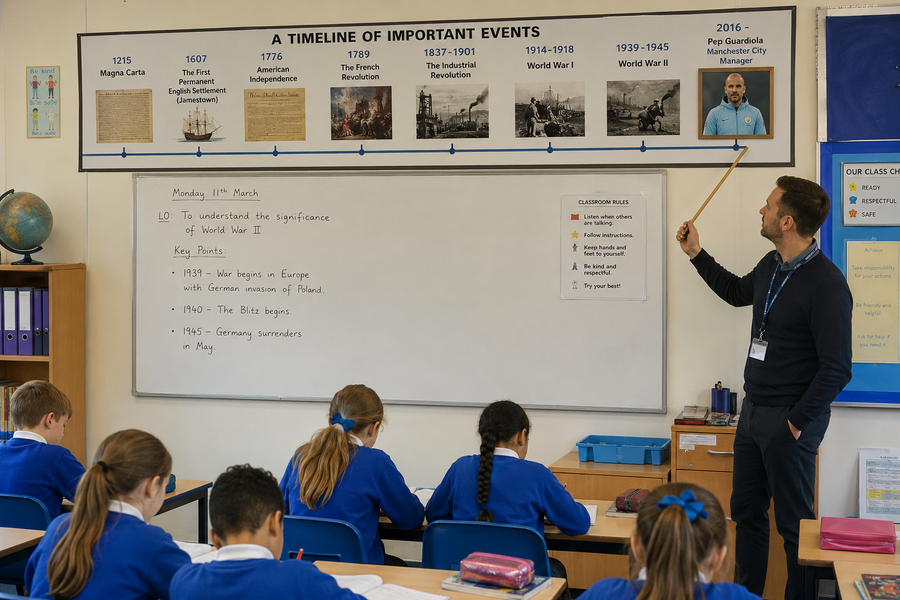 A TIMELINE OF IMPORTANT EVENTS
1215
Magna Carta
1607
The First
Permanent
English Settlement
(Jamestown)
1776
American
Independence
1789
The French
Revolution
1837-1901
The Industrial
Revolution
1914-1918
World War I
1939-1945
World War II
2016 -
Pep Guardiola
Manchester City
Manager
Be kind
Be safe
Monday 11th March
LO: To understand the significance
of World War II
Key Points:
• 1939 – War begins in Europe
with German invasion of Poland.
• 1940 – The Blitz begins.
• 1945 – Germany surrenders
in May.
CLASSROOM RULES
Listen when others
are talking.
Follow instructions.
Keep hands and
feet to yourself.
Be kind and
respectful.
Try your best!
OUR CLASS CH
READY
RESPECTFUL
SAFE
Achieve
Take responsibility
for your actions.
Be friendly and
helpful.
Ask for help if
you need it.